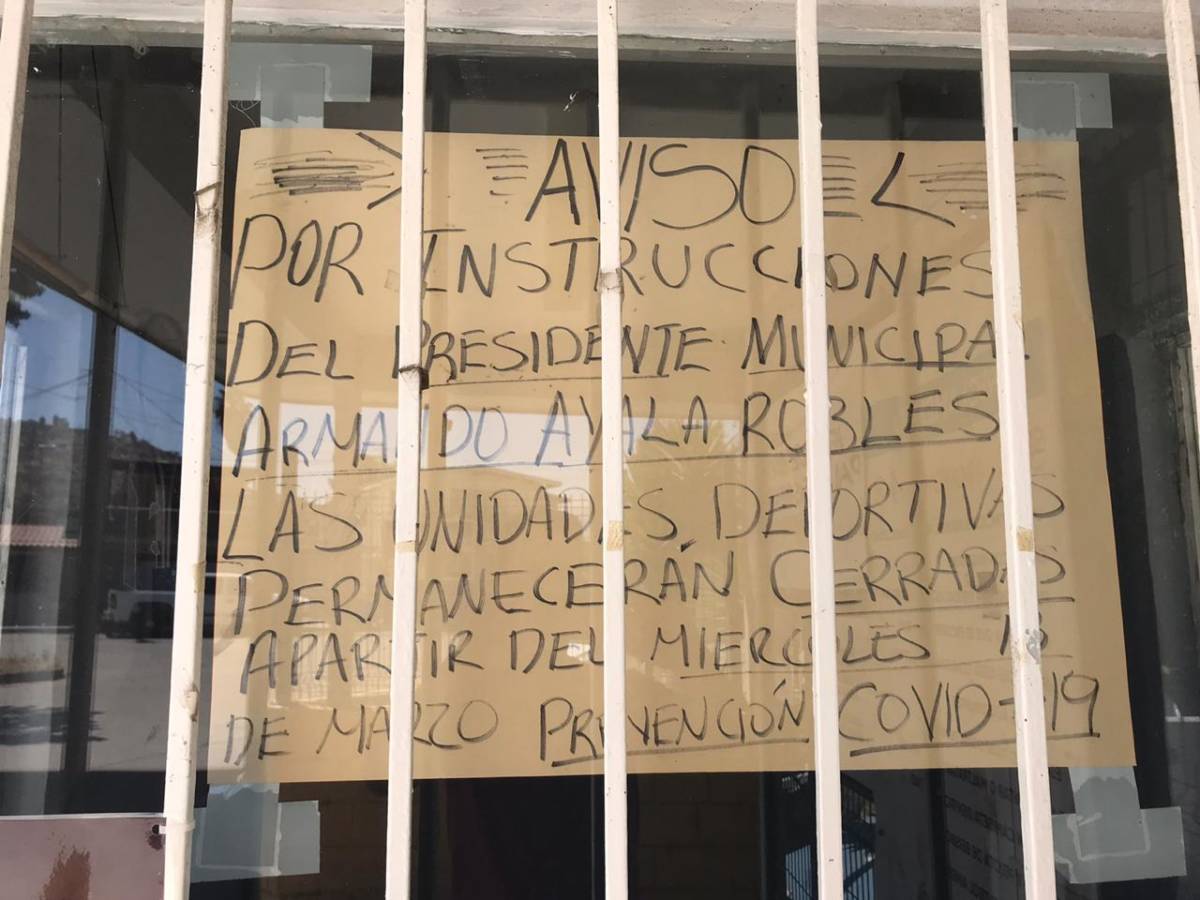 AVISO
POR INSTRUCCIONES
DEL PRESIDENTE MUNICIPAL
ARMANDO AYALA ROBLES
LAS UNIDADES DEPORTIVAS
PERMANECERÁN CERRADAS
APARTIR DEL MIERCOLES 18
DE MARZO PREVENCIÓN COVID-19